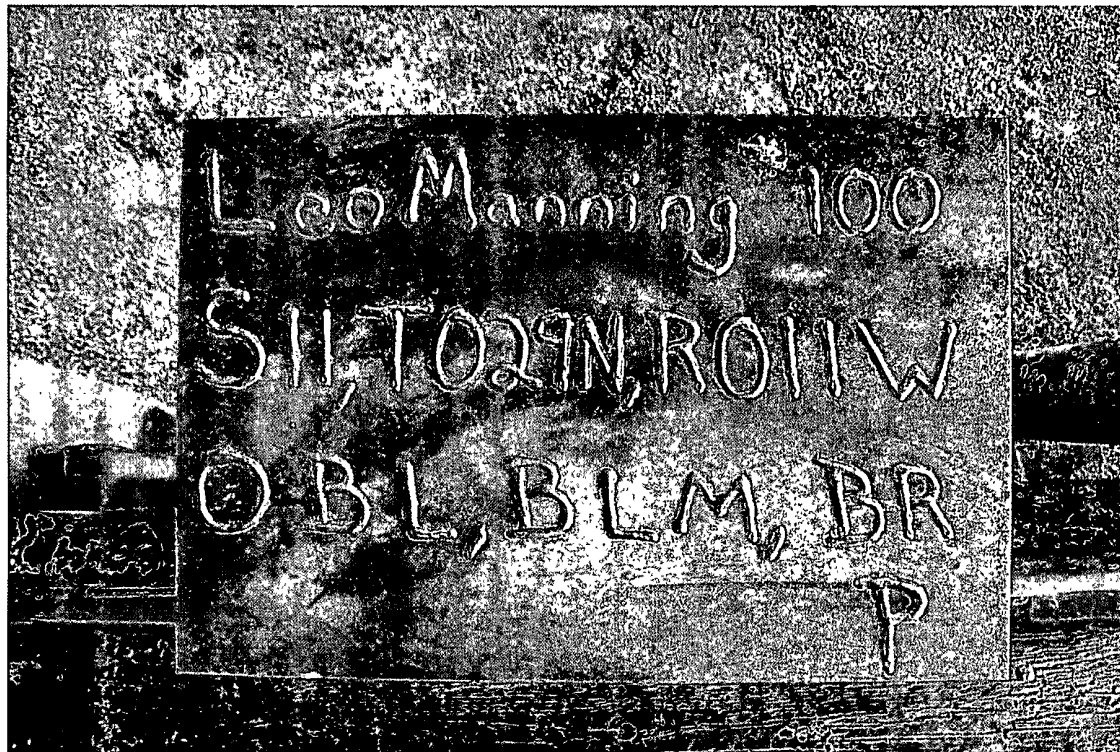 Leo Manning 100
S11, T029N, R011W
OBL, BLM, BR
P